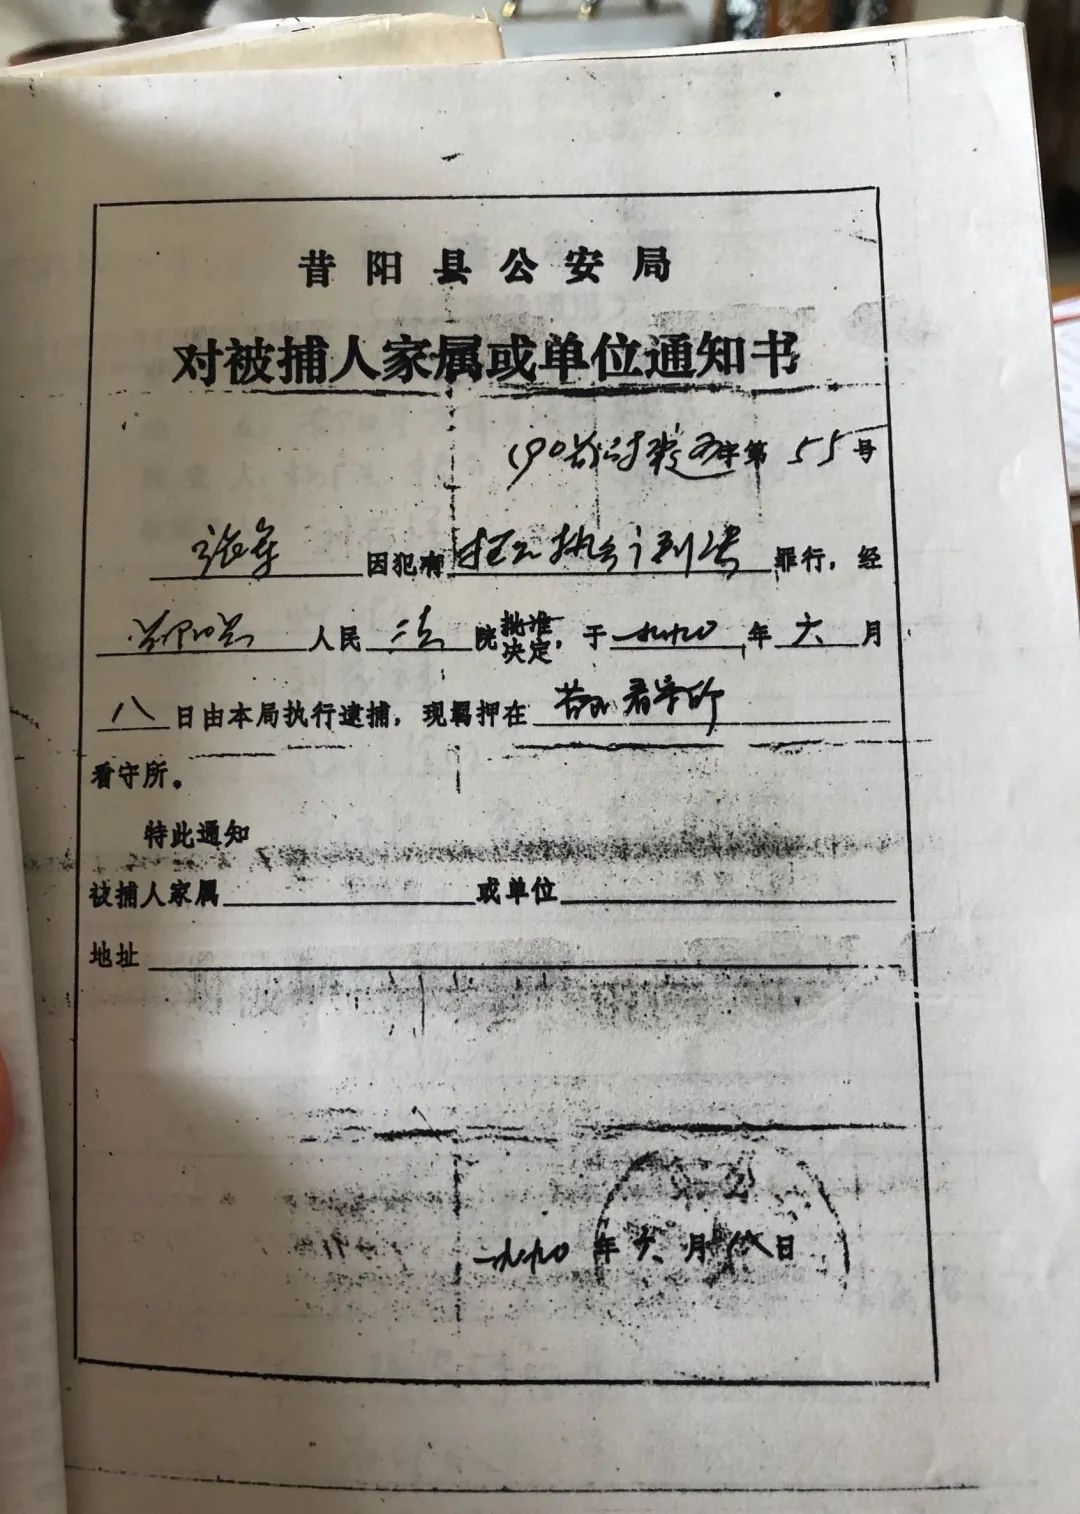 昔阳县公安局
对被捕人家属或单位通知书
字第 55 号
因犯有 拒不执行判决 罪行，经
人民 法 院 批准 决定，于 一九九〇 年 六 月
八 日由本局执行逮捕，现羁押在 昔阳看守所
看守所。
特此通知
被捕人家属 或单位
地址
一九九〇 年 六 月 八 日